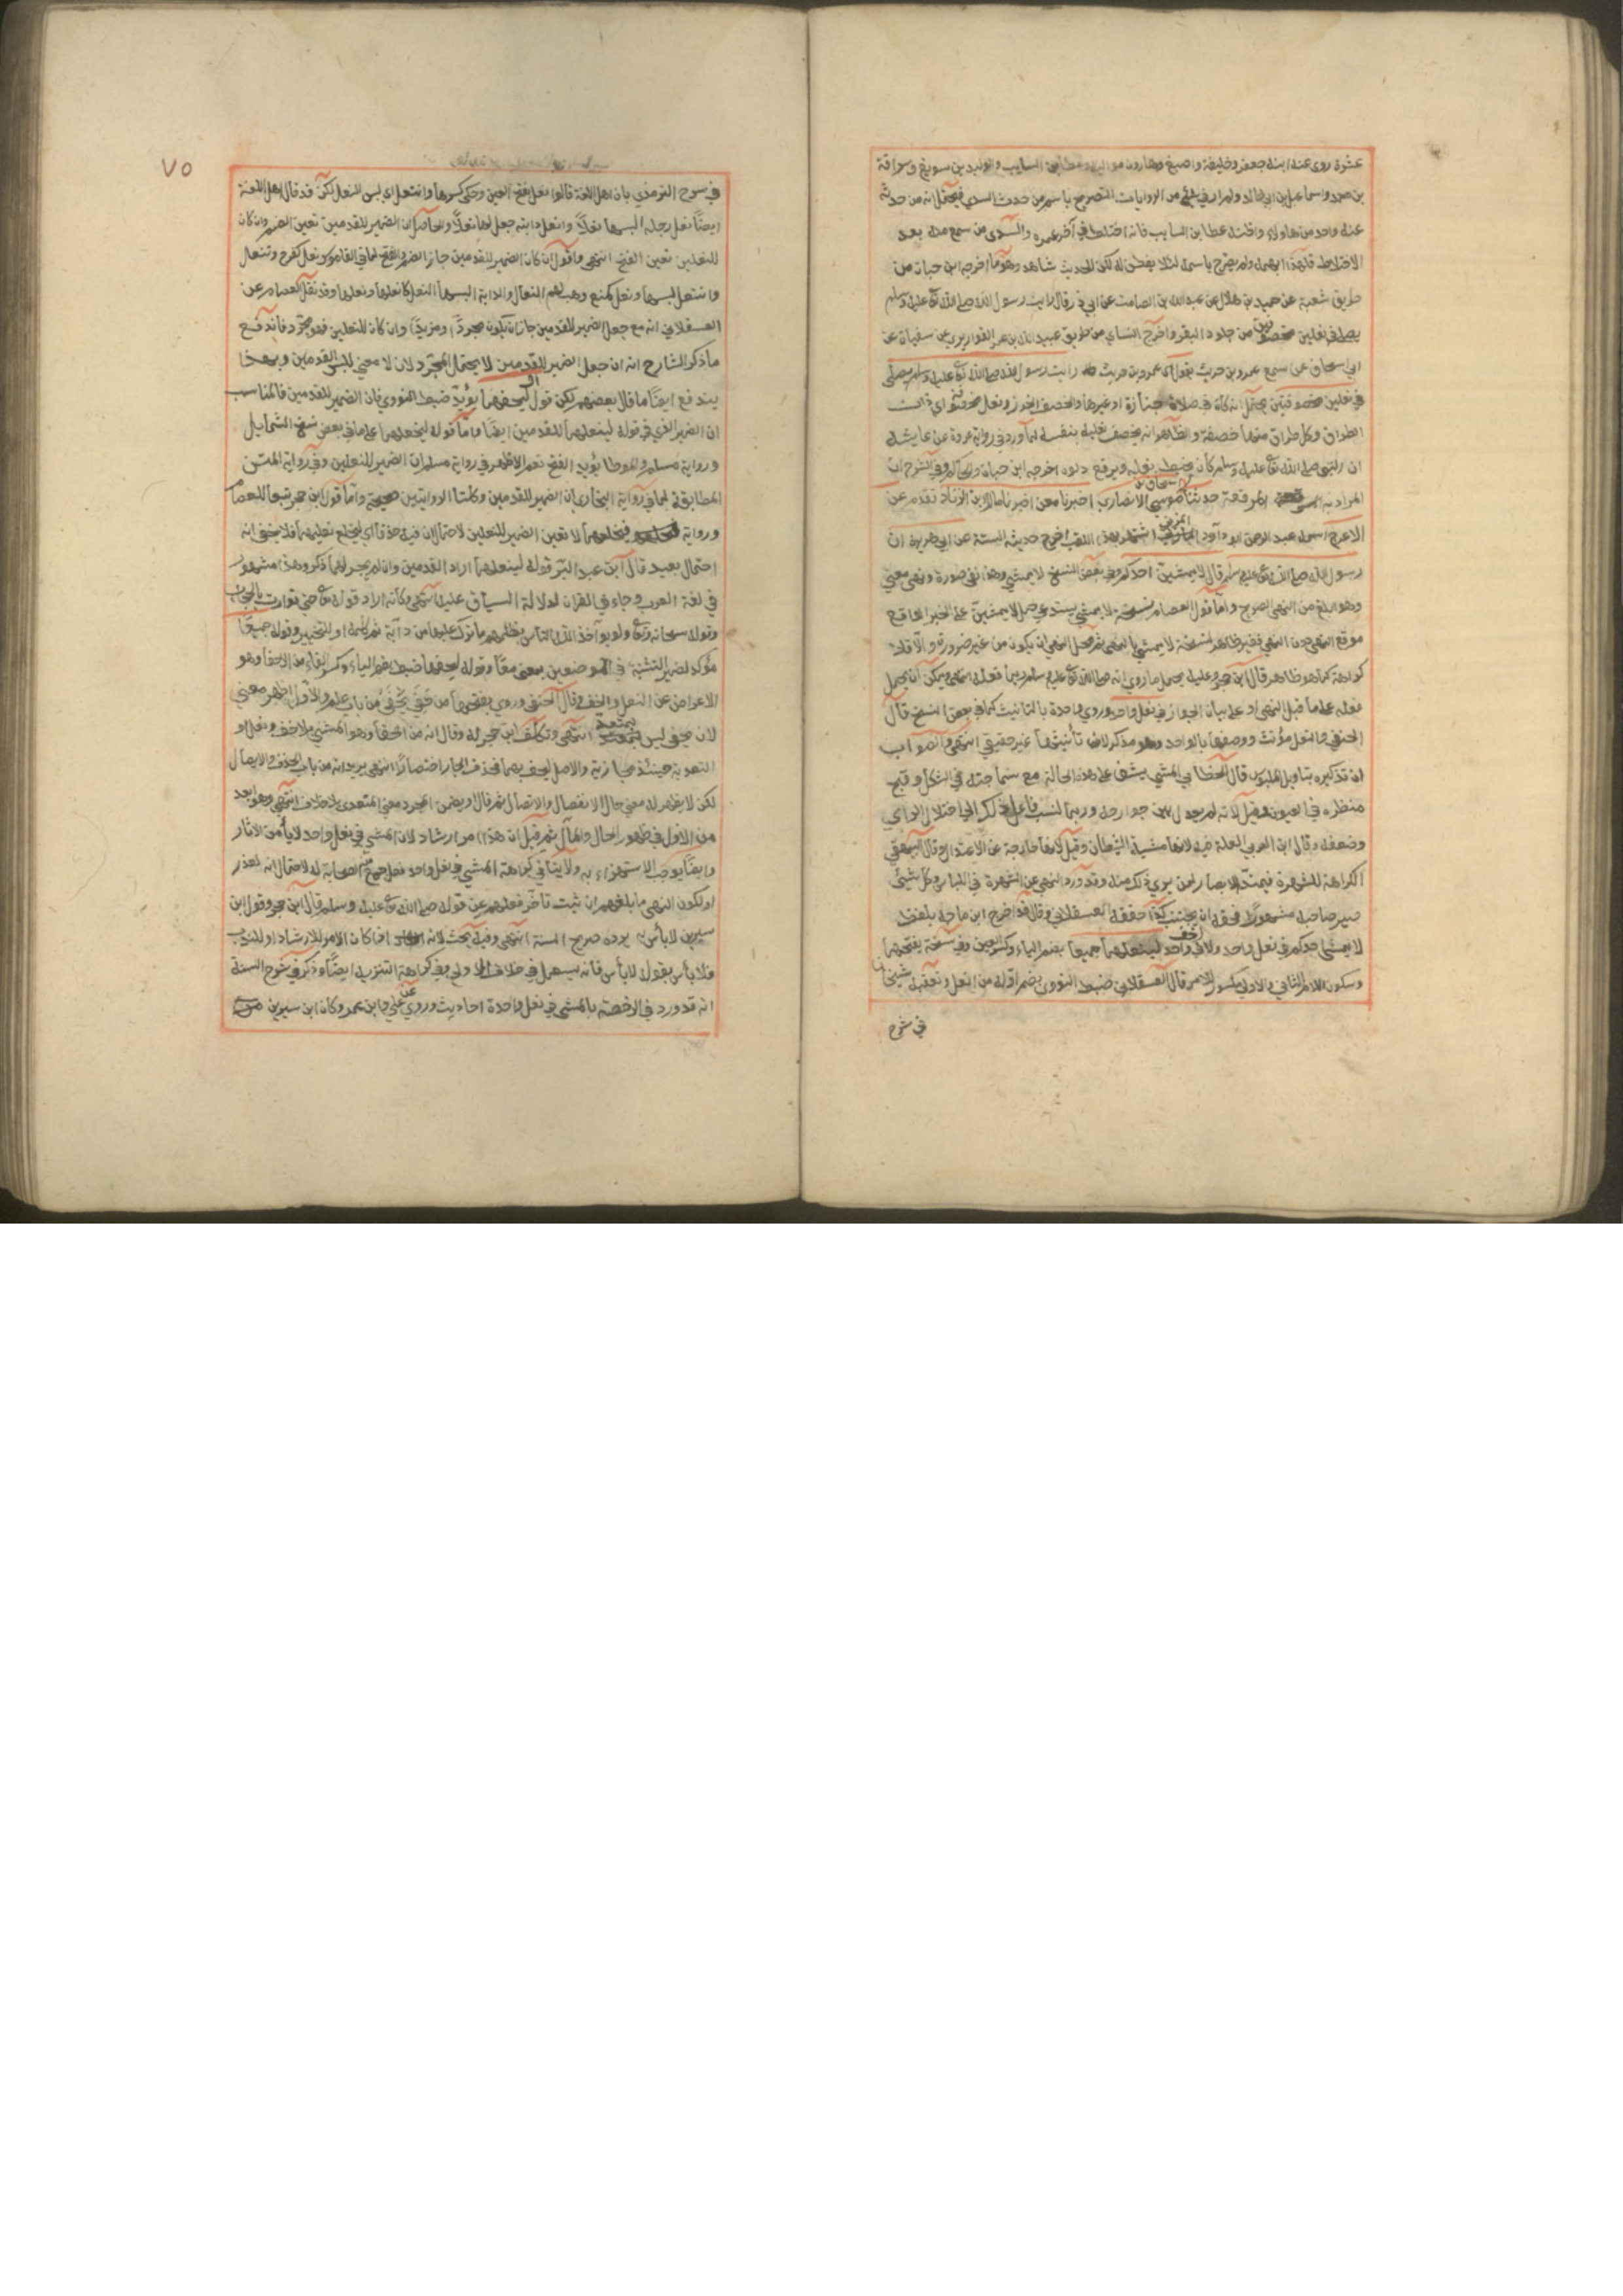 عشرة روى عنه ابنه جعفر وخليفة واصبغ وهارون مواليه وعطا بن السايب والوليد بن سويغ وسراقة
بن محمد واسماعيل بن ابي خالد ولم ار في شئ من الروايات التصريح باسم من حدث السدي فيحتمل انه من حدثه
عنه واحد من هاولاء واقنه عطا بن السايب فانه اختلط في آخر عمره والسدي من سمع منه بعد
الاختلاط فلهذا ابهمه ولم يصرح باسمه لئلا يفطن له لكن للحديث شاهد وهو ما اخرجه ابن حبان من
طريق شعبة عن حميد بن هلال عن عبد الله بن الصامت عن ابي ذر قال رايت رسول الله صلى الله تع عليه وسلم
يصلي في نعلين مخصوفتين من جلود البقر واخرج النساي من طريق عبيد الله بن عمر القواريري عن سفيان عن
ابي اسحاق عن سمع عمرو بن حريث يقول اي عمرو بن حريث رايت رسول الله صلى الله تع عليه وسلم يصلي
في نعلين مخصوفتين يحتمل انه كان في صلاة جنازة او غيرها والخصف الخرز ونعل مخصوفة اي ذات
الطراق وكل طراق منها خصفة والظاهر انه يخصف نعليه بنفسه لما ورد في رواية عروة عن عايشه
ان النبي صلى الله تع عليه وسلم كان يخيط نعليه ويرقع دلوه اخرجه ابن حبان والحاكم وفي الشرح ان
المراد به المرقعة حدثنا اسحاق بن موسى الانصاري اخبرنا معن اخبرنا مالك ابن الزناد تقدم عن
الاعرج اسمه عبد الرحمن ابو داود المدني اشتهر بهذا اللقب اخرج حديثه الستة عن ابي هريرة ان
رسول الله صلى الله تع عليه وسلم قال لا يمشين احدكم وفي بعض النسخ لا يمشي وهذا نفي صورة ونهى معنى
وهو ابلغ من النهي الصريح واما قول العصام نسخة لا يمشي يستدعي حمل لا يمشين على الخبر الواقع
موقع النهي دون النهي فغير ظاهر لنسخة لا يمشي يا لنهي ثم محل النهي ان يكون من غير ضرورة والا فلا
كراهة كما هو ظاهر قال ابن حجر وعليه يحمل ما روي انه صلى الله تع عليه وسلم ربما فعله انتهى ويمكن ان يحمل
فعله على ما قبل النهي او على بيان الجواز في نعل واحد وروي واحدة بالتانيث كما في بعض النسخ قال
الحنفي والنعل مؤنث ووصفها بالواحد وهو مذكر لان تأنيثها غير حقيقي انتهى والصواب
ان تذكيره بتاويل الملبوس قال الخطابي المشي يشق على هذه الحالة مع سماجته في الشكل وقبح
منظره في العيون وقيل لانه لم يعدل بين جوارحه وربما نسب فاعل ذلك الى اختلال الراي
وضعفه وقال ابن العربي العلة فيه لانها مشية الشيطان وقيل لانها خارجة عن الاعتدال وقال البيهقي
الكراهة للشهرة فيمتد الابصار لمن يري ذلك منه وقد ورد النهي عن الشهرة في اللباس وكل شيئ
صير صاحبه مشهورا فحقه ان يجتنب كذا حققه العسقلاني وقال قد اخرج ابن ماجه بلفظ
لا يمشي احدكم في نعل واحد ولا خف واحد لينعلهما جميعا بضم الياء وكسر العين وفي نسخة بفتحهما
وسكون اللام الثاني والاولي مكسورا للامر قال العسقلاني ضبطه النووي بضم اوله من انعل وتعقبه شيخنا
في شرح
٧٥
في شرح الترمذي بان اهل اللغة قالوا نعل بفتح العين وحكى كسرها وانتعل اي لبس النعل لكن قد قال اهل اللغة
ايضا نعل رجله البسها نعلا وانعل دابته جعل لها نعلا والحاصل ان الضمير للقدمين تعين الضم وان كان
للنعلين تعين الفتح انتهى واقول ان كان الضمير للقدمين جاز الضم والفتح لما في القاموس نعل كفرح وتنعل
وانتعل لبسها ونعل كمنع وهب لهم النعال والدابة البسها النعل كانعلها ونعلها وقد نقل العصام عن
العسقلاني انه مع جعل الضمير للقدمين جاز ان يكون مجردا ومزيدا وان كان للنعلين فهو مجرد فاندفع
ما ذكر الشارح انه ان جعل الضمير للقدمين لا يحتمل المجرد لان لا معنى للبس القدمين وبهذا
يندفع ايضا ما قال بعضهم لكن قوله ليحفهما يؤيد ضبط النووي فان الضمير للقدمين فالمناسب
ان الضمير الذي في قوله لينعلهما للقدمين ايضا واما قوله ليخلعهما على ما في بعض نسخ الشمايل
ورواية مسلم والموطا يؤيد الفتح نعم الاظهر في رواية مسلم ان الضمير للنعلين وفي رواية المتن
المطابقة لما في رواية البخاري ان الضمير للقدمين وكلتا الروايتين صحيحة واما قول ابن حجر تبعا للعصام
ورواية فيخلعهما لا تعين الضمير للنعلين لاحتمال ان فيه حذفا اي ليخلع نعليهما فلا يخفى انه
احتمال بعيد قال ابن عبد البر قوله لينعلهما اراد القدمين وان لم يجر لهما ذكر وهذا مشهور
في لغة العرب وجاء في القران لدلالة السياق عليه انتهى وكانه اراد قوله تع حتى توارت بالحجاب
وقوله سبحانه وتع ولو يؤآخذ الله الناس بظلمهم ما ترك عليها من دآبة ثم كلمة او للتخيير وقوله جميعا
مؤكد لضمير التثنية في الموضعين بمعنى معا وقوله ليحفهما ضبط بضم الياء وكسر الفاء من الاحفاء وهو
الاعراض عن النعل والخف وقال الحنفي وروي بفتحهما من حفي يحفى من باب علم والاول اظهر معنى
لان حفي ليس بمتعد انتهى وتكلف ابن حجر له وقال انه من الحفا وهو المشي بلا خف ونعل و
التعدية حينئذ مجازية والاصل ليحف بهما فحذف الجار اختصارا انتهى يريد انه من باب الحذف والايصال
لكن لا يظهر له معنى حال الانفصال والاتصال ثم قال او يضمن المجرد معنى المتعدي بلا خلاف انتهى وهو ابعد
من الاول في ظهور الحال والمآل ثم قيل ان هذا امر ارشاد لان المشي في نعل واحد لا يأمن الاثار
وايضا يوجب الاستهزاء به ولا ينافي كراهة المشي في نعل واحد فعل جمع من الصحابة له لاحتمال انه لعذر
او لكون النهي ما بلغهم ان ثبت تأخر فعلهم عن قوله صلى الله تع عليه وسلم قال ابن حجر وقول ابن
سيرين لا بأس به يرده صريح السنة انتهى وفيه بحث لانه اذا كان الامر للارشاد او للندب
فلا بأس بقوله لا بأس فانه يستعمل في خلاف الاولى وفي كراهة التنزيه ايضا وذكر في شرح السنة
انه قد ورد في الرخصة بالمشي في نعل واحدة احاديث وروي عن علي وابن عمر وكان ابن سيرين